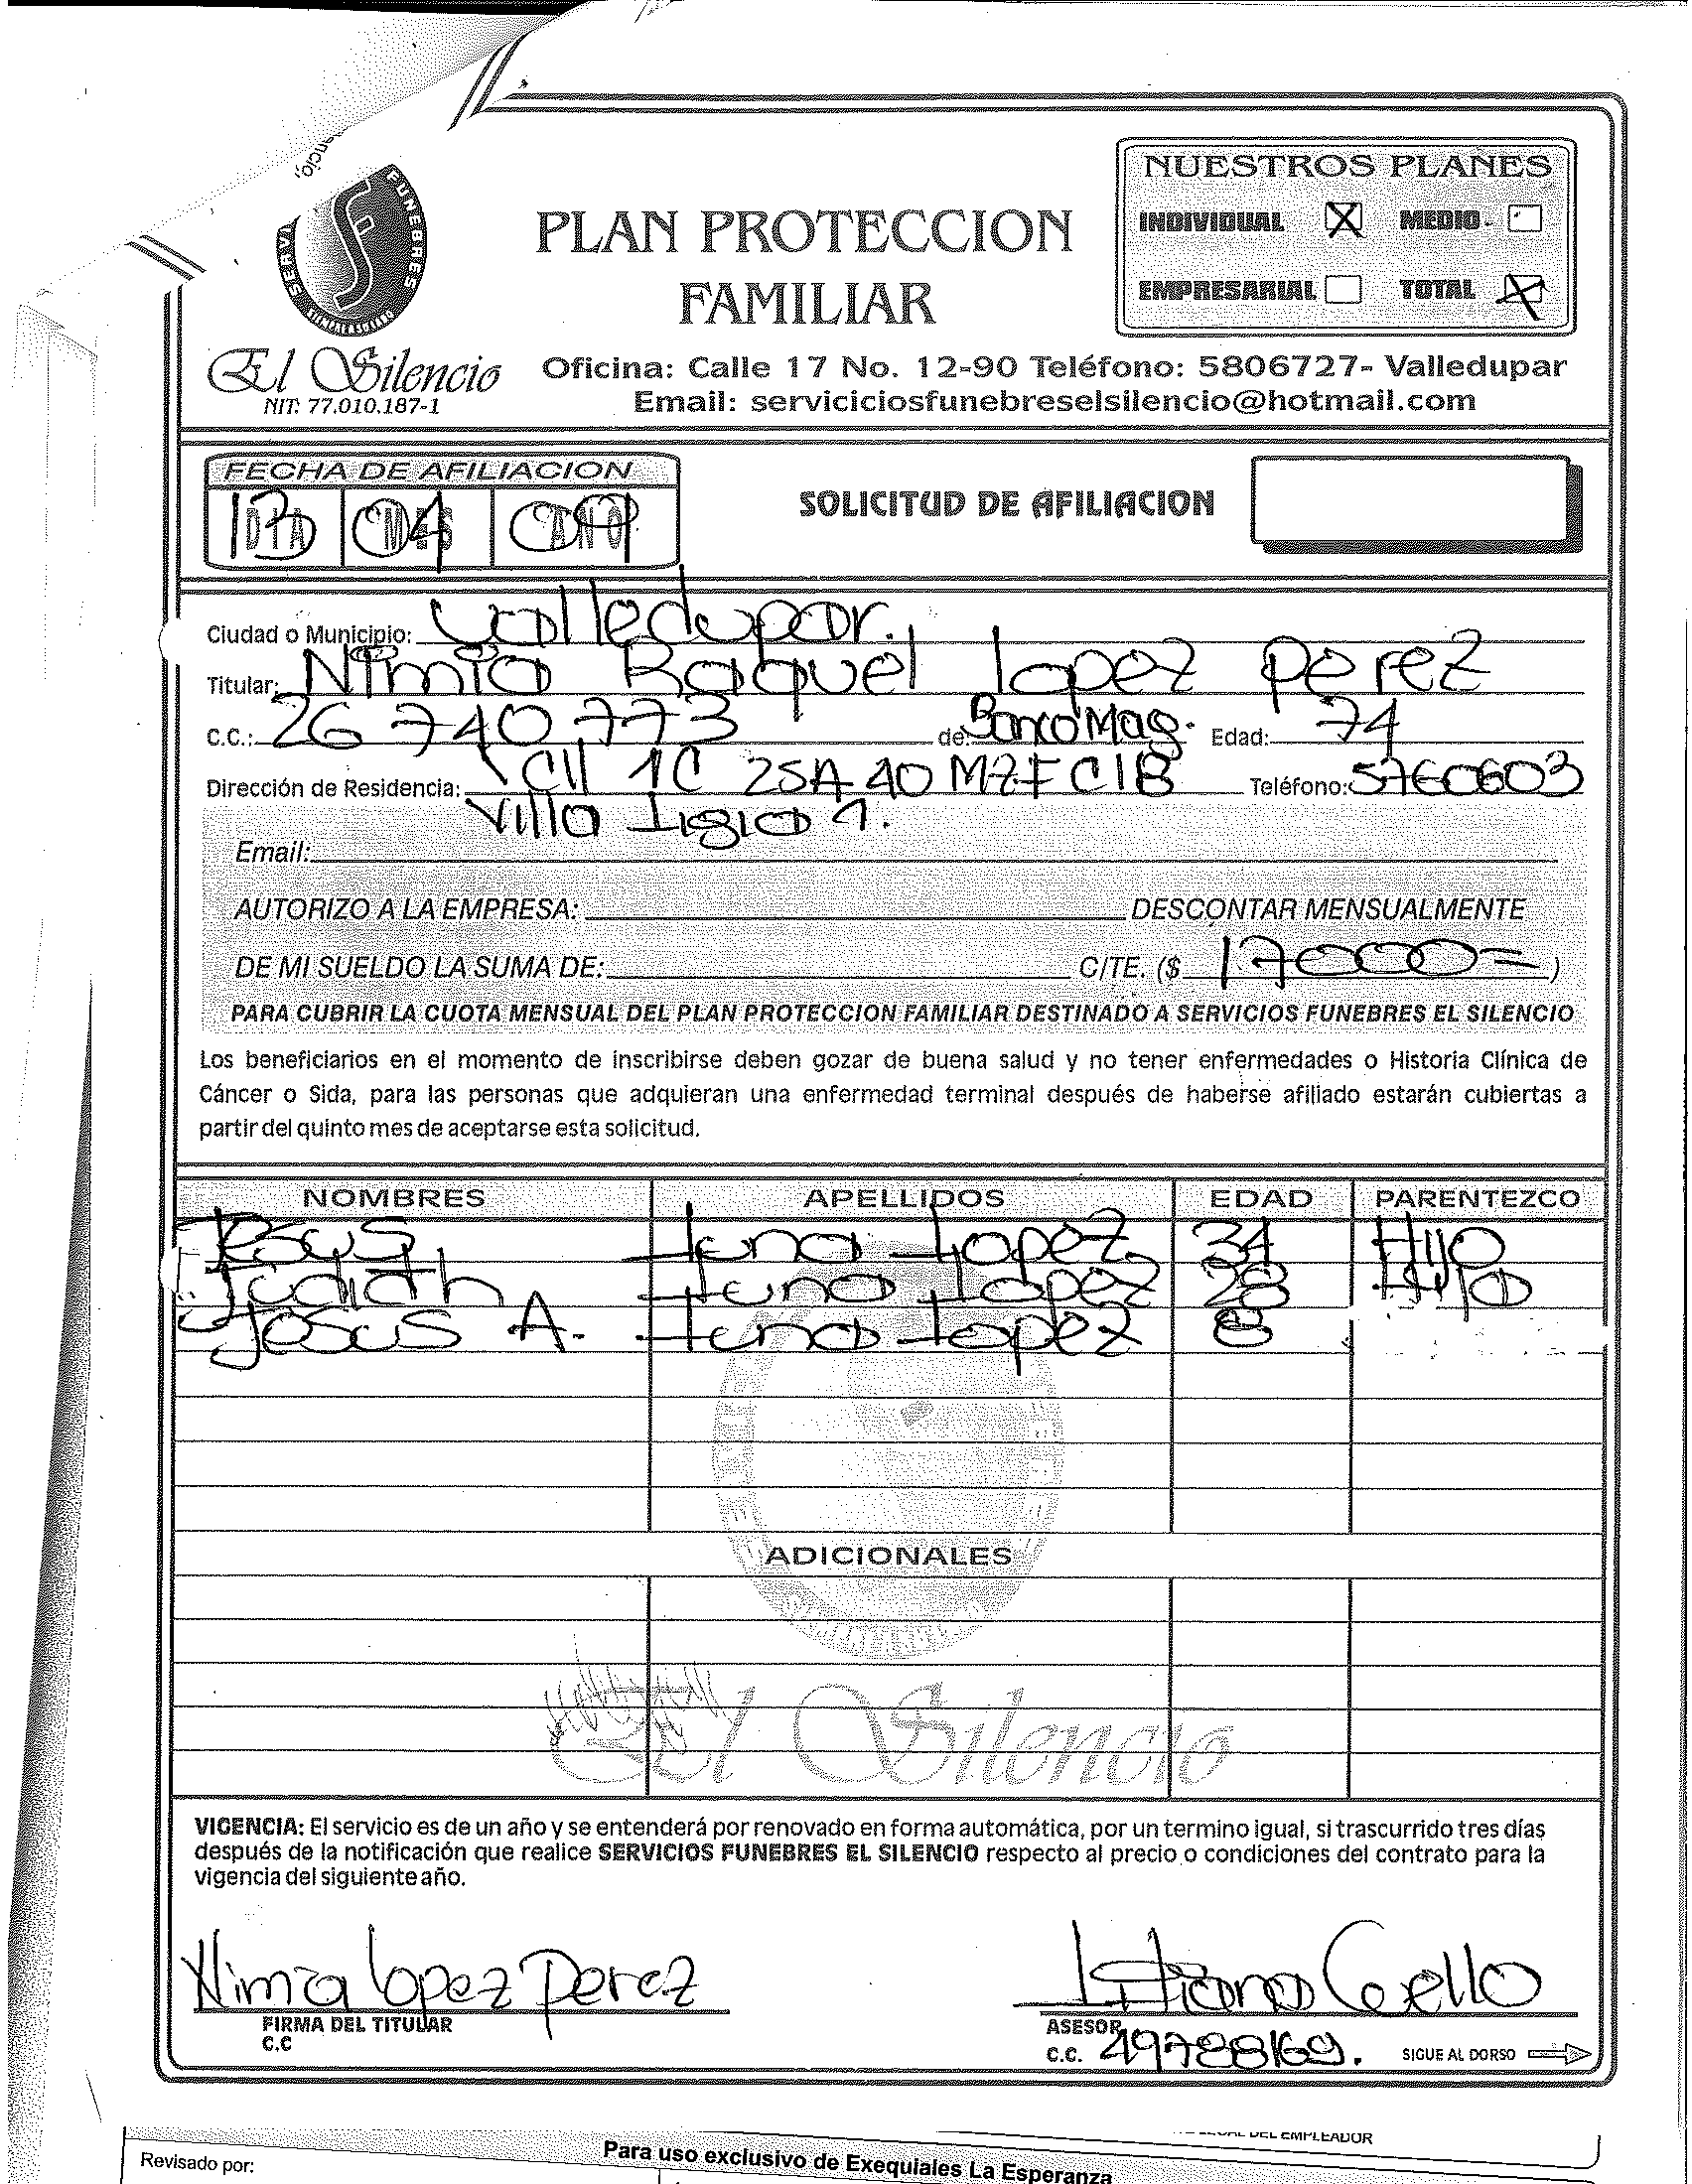 NUESTROS PLANES
INDIVIDUAL X MEDIO
EMPRESARIAL TOTAL X
PLAN PROTECCION
FAMILIAR
FUNEBRES
El Silencio
NIT: 77.010.187-1
Oficina: Calle 17 No. 12-90 Teléfono: 5806727- Valledupar
Email: serviciciosfunebreselsilencio@hotmail.com
FECHA DE AFILIACION
DIA MES AÑO
13 04 09
SOLICITUD DE AFILIACION
Ciudad o Municipio: Valledupar.
Titular: Nimia Raquel lopez perez
C.C.: 26 740 773 de: Banco Mag. Edad: 74
Dirección de Residencia: Cll 1C 25A 40 MZ F C18 Teléfono: 5760603
Villa Ligia 1.
Email:
AUTORIZO A LA EMPRESA: DESCONTAR MENSUALMENTE
DE MI SUELDO LA SUMA DE: C/TE. ($ 17000= )
PARA CUBRIR LA CUOTA MENSUAL DEL PLAN PROTECCION FAMILIAR DESTINADO A SERVICIOS FUNEBRES EL SILENCIO
Los beneficiarios en el momento de inscribirse deben gozar de buena salud y no tener enfermedades o Historia Clínica de
Cáncer o Sida, para las personas que adquieran una enfermedad terminal después de haberse afiliado estarán cubiertas a
partir del quinto mes de aceptarse esta solicitud.
NOMBRES APELLIDOS EDAD PARENTEZCO
Jesus Luna Lopez 34 Hijo
Judith Luna Lopez 28 Hija
Jesus A. Luna Lopez 8
ADICIONALES
El Silencio
VIGENCIA: El servicio es de un año y se entenderá por renovado en forma automática, por un termino igual, si trascurrido tres días
después de la notificación que realice SERVICIOS FUNEBRES EL SILENCIO respecto al precio o condiciones del contrato para la
vigencia del siguiente año.
Nimia Lopez Perez
FIRMA DEL TITULAR
C.C
ASESOR
C.C. 49788169.
SIGUE AL DORSO
DEL EMPLEADOR
Revisado por:
Para uso exclusivo de Exequiales La Esperanza